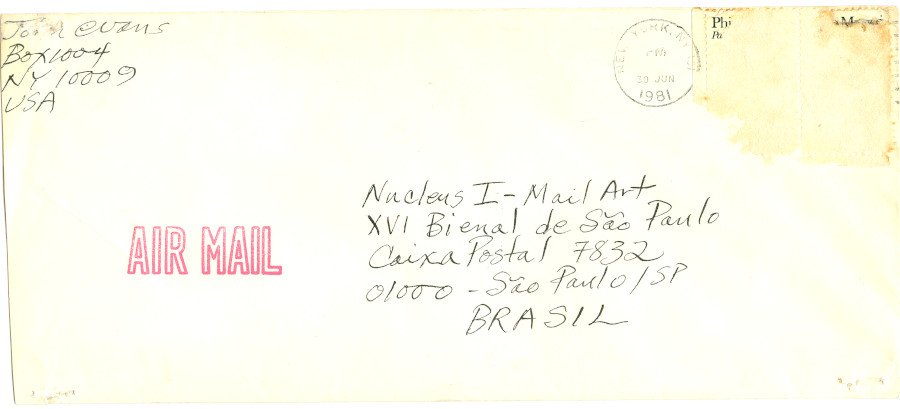 John evans
Box 1004
NY 10009
USA
NEW YORK, N.Y.
PM
30 JUN
1981
Phi
Pa
AIR MAIL
Nucleus I - Mail Art
XVI Bienal de São Paulo
Caixa Postal 7832
01000 - São Paulo / SP
BRASIL